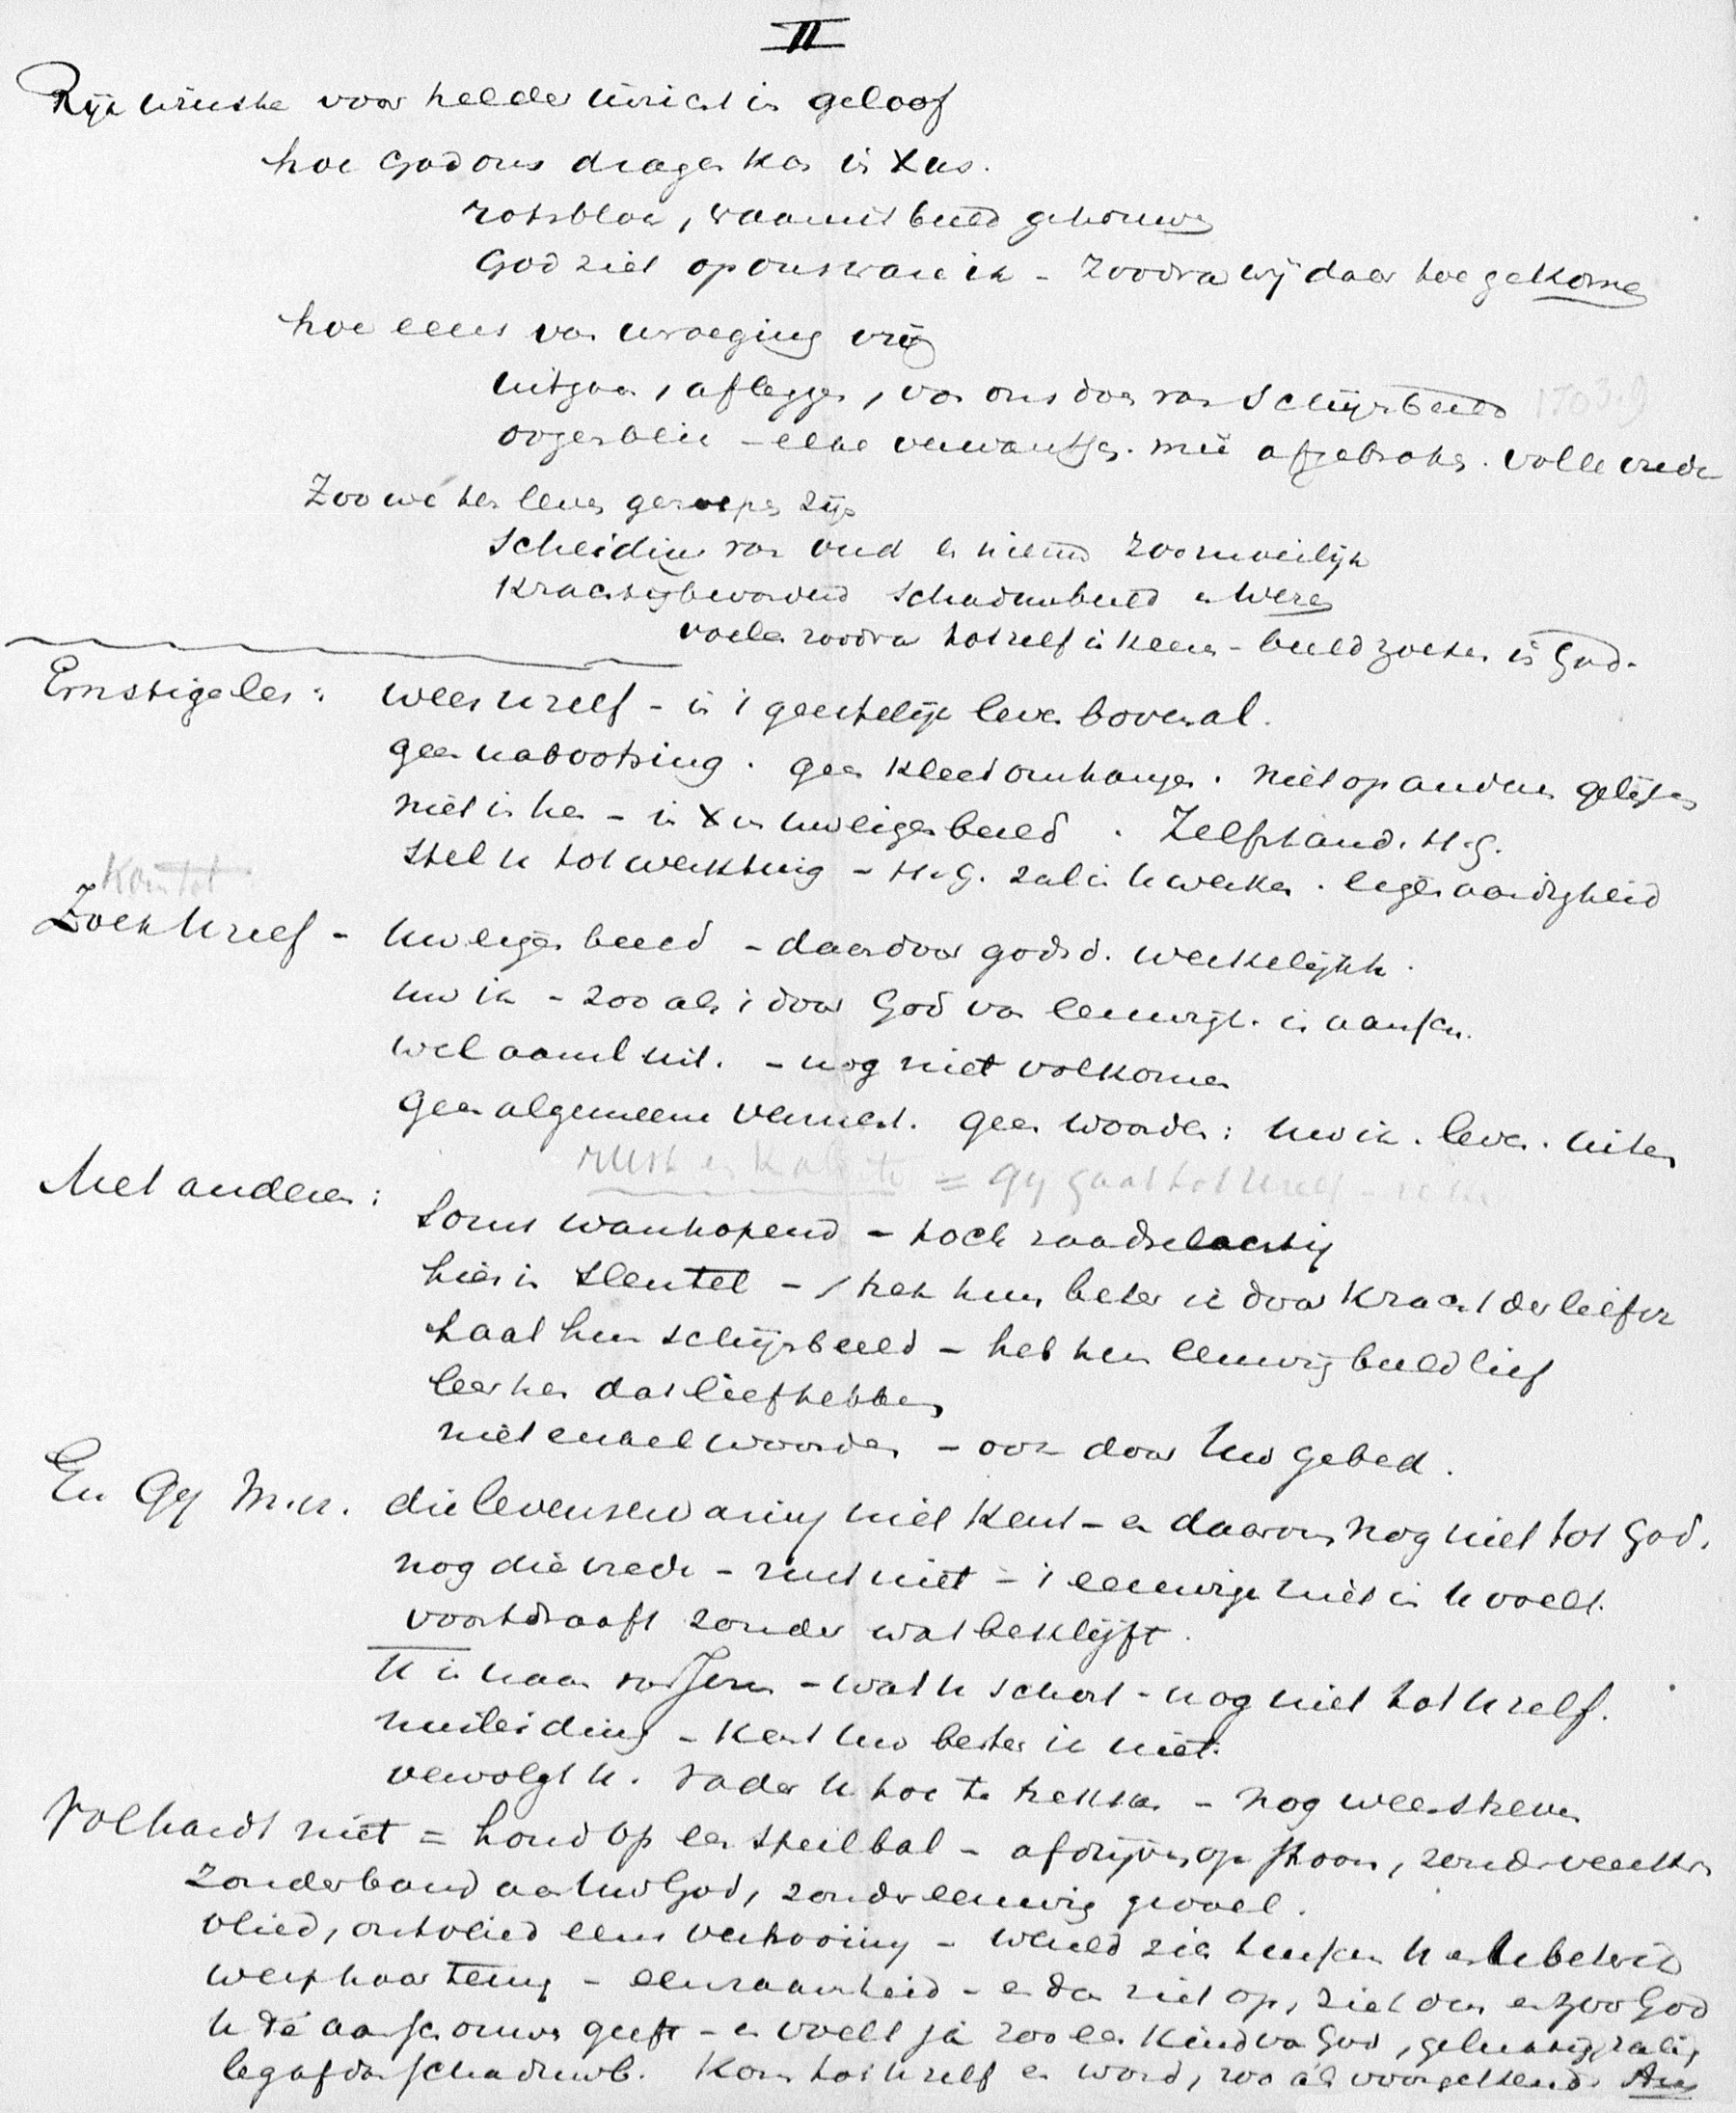 II
Rijke winste voor helder inzicht in geloof
hoe God ons dragen kan in Xus.
rotsblok, waaruit beeld gehouwen
God ziet op ons ware ik - zoodra wij daar toe gekomen
hoe eens van wroeging vrij
uitgaan, afleggen, van ons doen van schijnbeeld
oogenblik - elke verwantsch. mee afgebroken. volle vrede
Zoo we ten leven geroepen zijn
scheiding van oud en nieuw zoo moeilijk
krachtig bevorderd schaduwbeeld en wezen
voelen zoodra tot zelf in keeren - beeld zoeken in God.
Ernstige les: wees uzelf - in 't geestelijk leven bovenal.
geen nabootsing. geen kleed omhangen. niet op anderen gelijken
niet in hen - in X uw eigen beeld. Zelfstand. H.G.
Stel u tot werktuig - H.G. zal in u werken. eigenaardigheid
Kom tot
Zoek Uzelf - Uw eigen beeld - daardoor godsd. werkelijkh.
Uw ik - zooals 't door God van eeuwigh. is aansch.
wel aanl. uit. - nog niet volkomen
geen algemeene vernicht. geen woorden: Uw ik. leven. uiten
rust en = gij gaat tot Uzelf -
Met anderen: Soms wanhopend - toch raadselachtig
hier is sleutel - trek hun beter ik door kracht der liefde
haat hun schijnbeeld - heb hun eeuwig beeld lief
leer hen dat liefhebben
niet enkel woorden - ook door Uw gebed.
En Gij M.u. die levenservaring niet kent - en daarom nog niet tot God.
nog die vrede - rust niet - 't eeuwige niet in U voelt.
voortdraaft zonder wat beklijft.
U is naar - wat U schort - nog niet tot Uzelf.
misleiding - kent Uw beter ik niet.
vervolgt U. Vader U toe te trekken - nog weerstreven
Volhardt niet = houd op een speelbal - afdrijven op stroom, zonder
zonder band aan Uw God, zonder eeuwig gevoel.
vlied, ontvlied eens verstrooiing - wereld zich tusschen U en Ubeterik
werp haar terug - eenzaamheid - en dan ziet op, ziet dan en zoo God
U te aanschouwen geeft - en voelt ja zoo een kind van God, gelukkig, zalig
leg af dan schaduwb. Kom tot Uzelf en word, zoo als voorgekend. Am